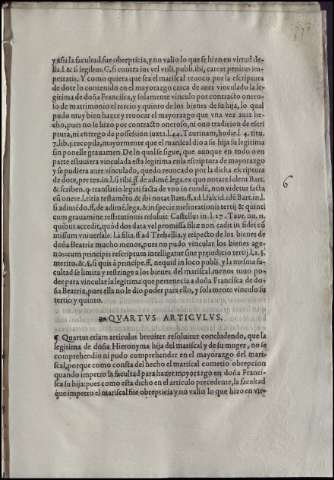 y assi la facultad fue obrepticia, y no valio lo que se hizo en virtud de-
lla. l. & si legibus. C. si contra ius vel vtili. publi. ibi, careat penitus im-
petratis. Y como quiera que sea el mariscal reuoco por la escriptura
de dote lo contenido en el mayorazgo cerca de auer vinculado la le-
gitima de doña Francisca, y solamente vinculo por contracto onero-
so de matrimonio el tercio y quinto de los bienes de su hija, lo qual
pudo muy bien hazer y reuocar el mayorazgo que vna vez auia he-
cho, pues no lo hizo por contracto oneroso, ni ouo tradicion de escri
ptura, ni entrego de possession juxta l. 44. Taurinam, hodie l. 4. titu.
7. lib. 5. recopila, mayormente que el mariscal dio a su hija la legitima
sin ponelle grauamen. De lo qual se sigue, que aunque en todo o en
parte estuuiera vinculada esta legitima en la escriptura de mayorazgo
y se pudiera auer vinculado, quedo reuocado por la dicha escriptura
de dote, per tex. in l. si seruus. ff. de adime. lega. ex quo notat eodem Bart.
& scriben. q translatio legati facta de vno in eundem, non videtur facta
cum onere. l. vnica
& quinti
cum grauamine restitutionis reducit Castellus in l. 17. Taur. nu. 11.
quibus accedit, quod dos data vel promissa filie non cadit in fideico
missum vniuersale. l. filia. ff. ad Trebellia, y respecto de los bienes de
doña Beatriz mucho menos, pues no pudo vincular los bienes age-
nos cum principis rescriptum intelligatur sine prejudicio tertij, l. 2. §.
merito. & §. si quis a principe. ff. ne quid in loco publi. y la mesma fa-
cultad se limita y restringe a los bienes del mariscal, menos tuuo po-
der para vincular la legitima que pertenecia a doña Francisca de do-
ña Beatriz, pues ella no le dio poder para ello, y solamente vinculo su
tercio y quinto.
QVARTVS ARTICVLVS.
¶ Quartus etiam articulus breuiter resoluitur concludendo, que la
legitima de doña Hieronyma hija del mariscal y de su muger, no se
comprehendio ni pudo comprehender en el mayorazgo del maris-
cal, porque como consta del hecho el mariscal cometio obrepcion
quando impetro la facultad para hazer mayorazgo en doña Franci-
sca su hija: pues como esta dicho en el articulo precedente, la facultad
que impetro el mariscal fue obrepticia y no valio lo que hizo en vir-
6